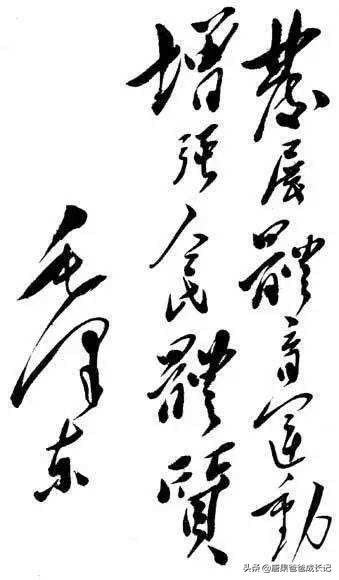 發展體育運動
增强人民體質
毛泽东
头条 @唐鼎爸爸成长记